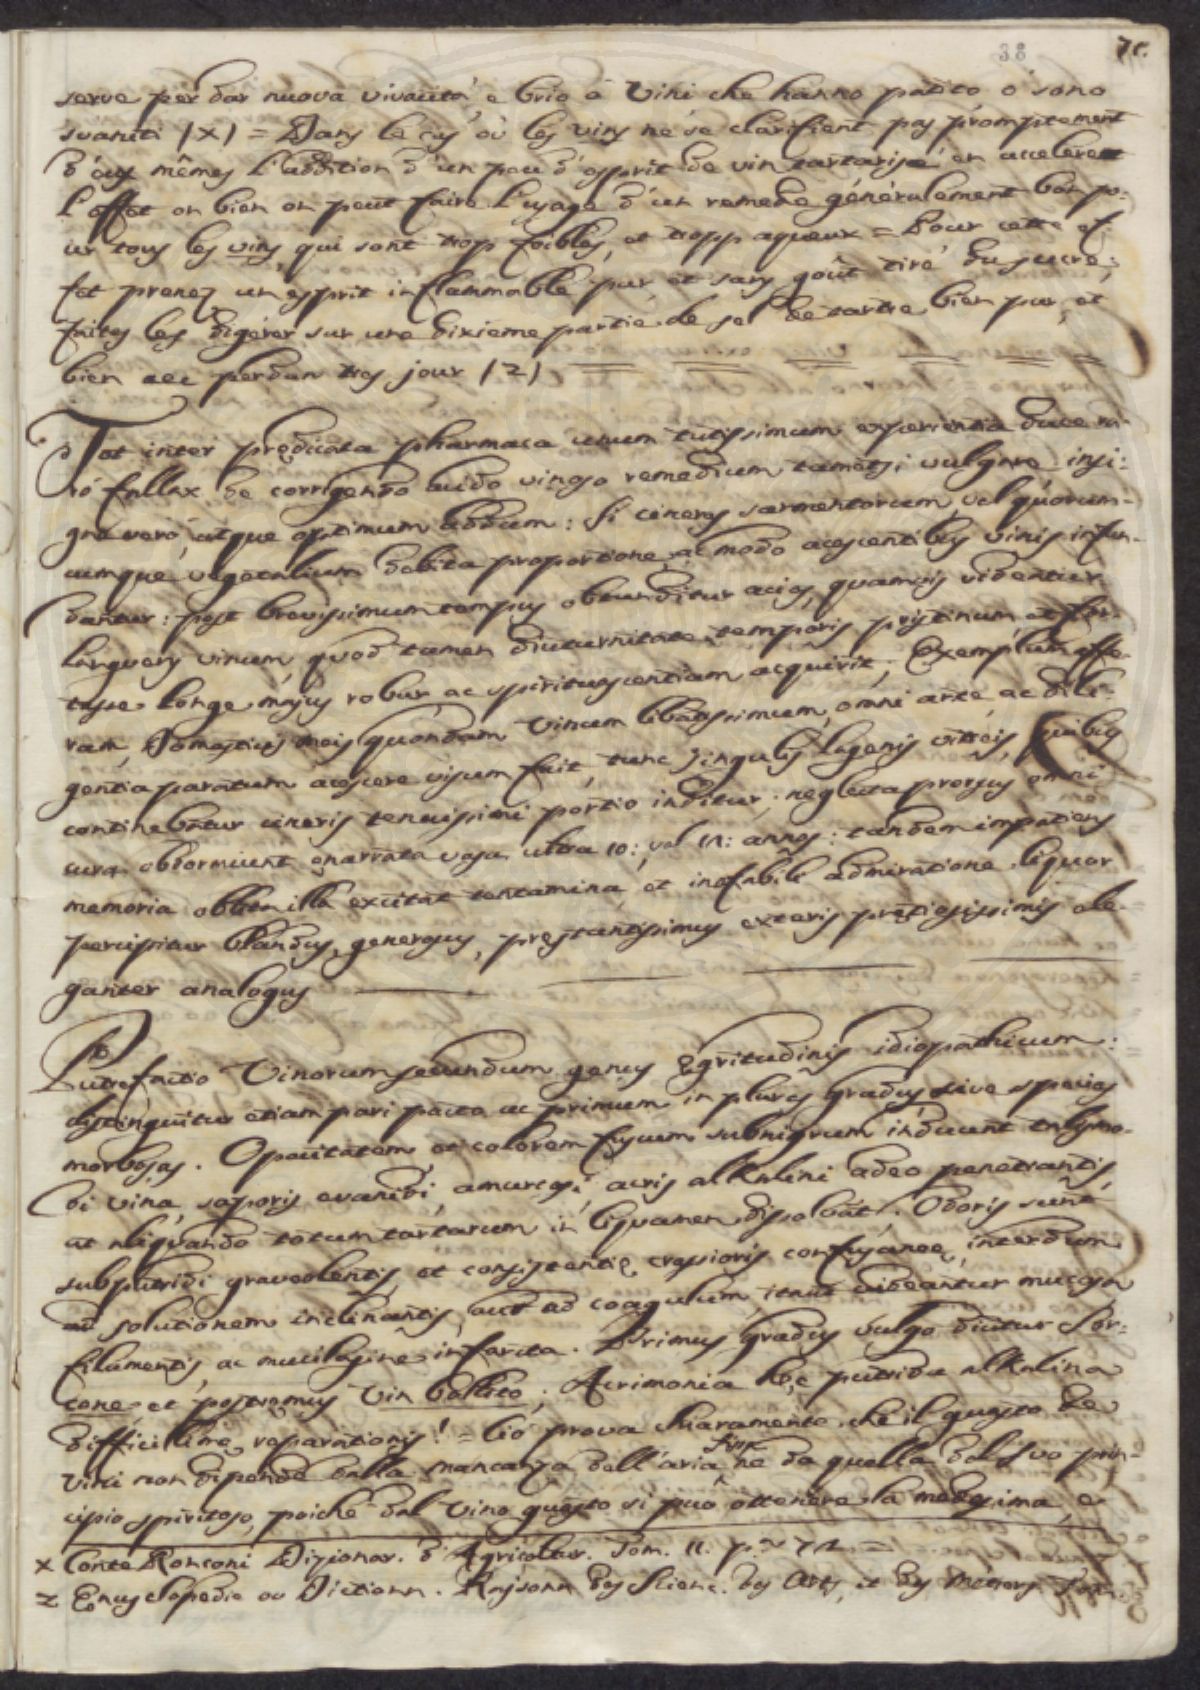 38 75.
serve per dar nuova vivacità e brio à Vini che hanno patito ò sono
svaniti (X) = Dans le cas où les vins ne se clarifient pas promptement
d'eux mêmes l'addition d'un peu d'esprit de vin tartarisé en accelere
l'effet on bien on peut faire l'usage d'un remede généralement bon po-
ur tous les vins qui sont trop foibles, et tropp aqueux = Pour cette ef-
fet prenez un esprit inflammable pur et sans goût tiré du sucre;
faites les digérer sur une dixieme partie de sel de tartre bien pur, et
bien sec pendan tres jour (Z)
Tot inter prędicata pharmaca unum tutissimum experientia duce ni-
ló fallax de corrigendo acido vinoso remedium tametsi vulgare insi-
gne veró, atque optimum addam: Si cineres sarmentorum, vel quorum-
cumque vegetalium debita proportione, ac modo acescentibus vinis infun-
dantur: post brevissimum tempus obtunditur acies, quamvis videntur
languens vinum, quod tamen diuturnitate temporis pristinum, et for-
tasse longe majus robur ac spirituscentiam acquirit; Exemplum affe-
ram, Domesticis meis quondam Vinum libatissimum, omni arte, ac dili-
gentia paratum acescere visum fuit, tunc singulis lagenis vitreis, quibus
continebatur cineris tenuissimi portio inditur; neglecta prorsus omni
cura obdormiunt enarrata vasa ultra 10: vel 12: annos: tandem impatiens
memoria oblita illa excitat tentamina, et inefabili admiratione liquor
percipitur blandus, generosus, pręstantissimus exteris prętiosissimis ele-
ganter analogus
Putrefactio Vinorum secundum genus Egritudinis idiopathicum:
distinguitur etiam pari pacto ac primum in plures gradus sive species
morbosas. Opacitatem et colorem fuscum subnigrum inducunt
bi vina, saporis evanidi, amurcosi, acris alkalini adeo penetrantis,
ut aliquando totum tartarum in liquamen dissolvat. Odoris sunt
subputridi graveolentis, et consistentię crassioris confusanee, interdum
ad solutionem inclinantis, aut ad coagulum, itaut videantur mucosa
filamentis, ac mucilagine infarcta. Primus gradus vulgo dicitur Cer-
cone, et postremus Vin bollito; Acrimonia hęc putrida alkalina
difficillimę reparationis! = Ció prova chiaramente che il guasto de
vini non dipende dalla mancanza dell'aria fixa ne da quella del suo prin-
cipio spiritoso, poiché dal Vino guasto si puó ottenere la medesima, e
X Conte Ronconi Dizionar. d'Agricoltur. Tom. II.
Z Encyclopedie ou Dictionn. Raisonn des Scienc. des Arts, et des Metiers